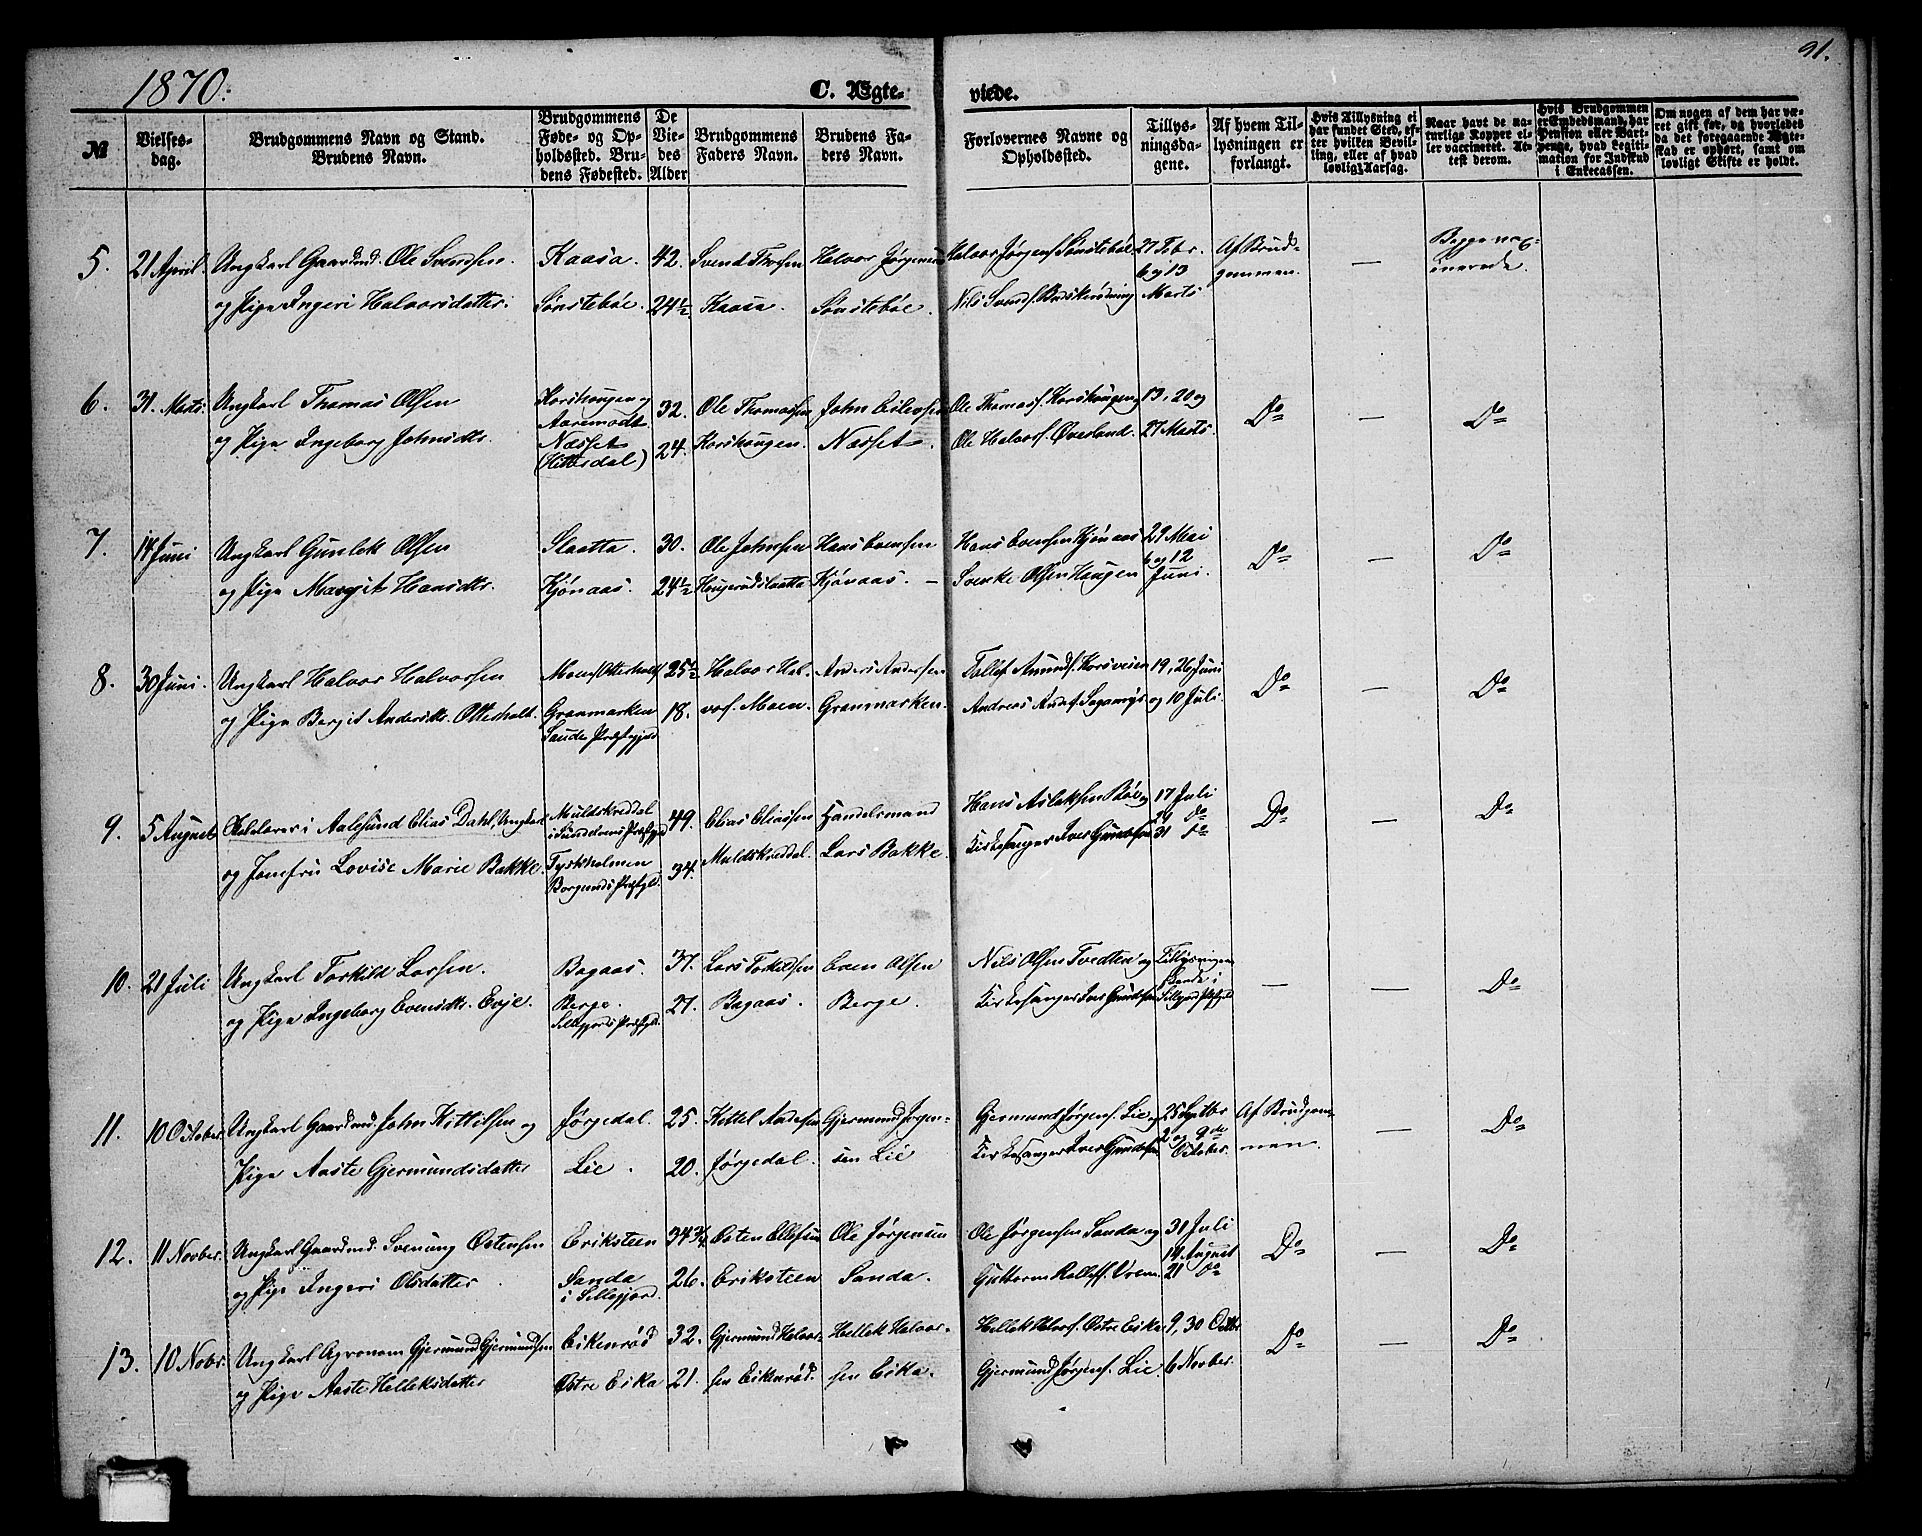 1870.
C. Ægte-
viede.
91.
№
Vielses-
dag.
Brudgommens Navn og Stand.
Brudens Navn.
Brudgommens
Føde- og Op-
holdssted. Bru-
dens Fødested.
De
Vie-
des
Alder
Brudgommens
Faders Navn.
Brudens Fa-
ders Navn.
Forlovernes Navne og
Opholdssted.
Tillys-
ningsda-
gene.
Af hvem Til-
lysningen er
forlangt.
Hvis Tillysning ei
har fundet Sted, ef-
ter hvilken Bevil-
ling, eller af hvad
lovlig Aarsag.
Naar havt de na-
turlige Kopper el-
ler vaccineret. At-
test derom.
Hvis Brudgommen
er Embedsmand, har
Pension eller Vart-
penge, hvad Legiti-
mation for Indskud
i Enkecassen.
Om nogen af dem har væ-
ret gift før, og hvorledes
da det foregaaende Ægte-
skab er ophørt, samt om
lovligt Skifte er holdt.
5.
21 April
Ungkarl Gaardmd. Ole Svendsen.
og Pige Ingeri Halvorsdatter.
Kaasa.
Sønstebøe.
42.
24½
Svend Thorsen
Kaasa.
Halvor Jørgensen
Sønstebøe.
Halvor Jørgens. Sønstebøe
Nils Svends.
27 Febr.
6 og 13
Marts
Af Brud-
gommen.
—
Begge vac-
cinerede.
6.
31. Marts
Ungkarl Thomas Olsen
og Pige Ingeborg Johnsdtr.
Korshougen og
Aaremodt
Næsset
(Hitterdal)
32.
24.
Ole Thomassen
Korshougen.
John Eilevsen
Næsset.
Ole Thomass. Korshougen og
Ole Halvors. Øverland.
13, 20 og
27 Marts.
Do
—
Do
7.
14 Juni
Ungkarl Gunlek Olsen
og Pige Margit Hansdtr.
Slaatta.
Kjønaas.
30.
24½
Ole Johnsen
Hougerudslaatta
Hans Evensen
Kjønaas. —
Hans Evensen Kjønaas
Svenke Olsen Haugen
29 Mai
6 og 12
Juni.
Do
—
Do
8.
30 Juni.
Ungkarl Halvor Halvorsen
og Pige Bergit Andersdtr. Otterholt.
Moen, Otterholt
Granmarken
Saude Præstegjeld
25½
18.
Halvor Hal-
vors. Moen.
Anders Andersen
Granmarken.
Tollef Amunds. Korsveien
Andreas Anders. Sagamyr
19, 26 Juni
og 10 Juli.
Do
—
Do
9.
5 August
i Aalesund Elias Dahl, Ungkarl
og Jomfru Lovise Marie Bakke.
Muldskreddal
i Søndmør Præstgjd
Tyskholmen
Borgunds Præstgjd.
49.
34.
Elias Eliassen
Muldskreddal.
Handelsmand
Lars Bakke.
Hans Aslaksen Bøe og
Kirkesanger Iver Gundersen
17 Juli
24 do
31 do
Do
—
Do
10.
21 Juli
Ungkarl Torkild Larsen.
og Pige Ingeborg Evensdtr. Evje.
Bagaas.
Berge.
Sillejords Præstgjd.
37.
27.
Lars Torkildsen
Bagaas.
Even Olsen
Berge.
Nils Olsen Tvedten og
Kirkesanger Iver Gundersen
Tillysningen
skede i
Sillejord Præstgjd
—
—
Do
11.
10 October
Ungkarl Gaardmd. John Kittilsen og
Pige Aaste Gjermundsdatter
Jørgedal.
Lie.
25.
20.
Kittel Andersen
Jørgedal.
Gjermund Jørgen-
sen Lie
Gjermund Jørgens. Lie og
Kirkesanger Iver Gundersen
25 Septbr
2 og 9de
October.
Af Brudgom-
men.
—
Do
12.
11 Novber.
Ungkarl Gaardmd. Svenung Østensen
og Pige Ingeri Olsdatter
Eriksteen
Sanda
i Sillegjord.
34¾
26.
Østen Ellefsen
Eriksteen
Ole Jørgensen
Sanda.
Ole Jørgensen Sanda og
Guttorm Rolleffs. Vreim.
31 Juli
14 August
21 do
Do
—
Do
13.
10 Novbr.
Ungkarl Agronom Gjermund Gjermundsen
og Pige Aaste Helleksdatter
Eikenrød
Østre Eika
32.
21.
Gjermund Halvor-
sen Eikenrød.
Hellek Halvor-
sen Eika.
Hellek Halvors. Østre Eika
Gjermund Jørgens. Lie.
9, 30 Octbr
6 Novber.
Do
—
Do